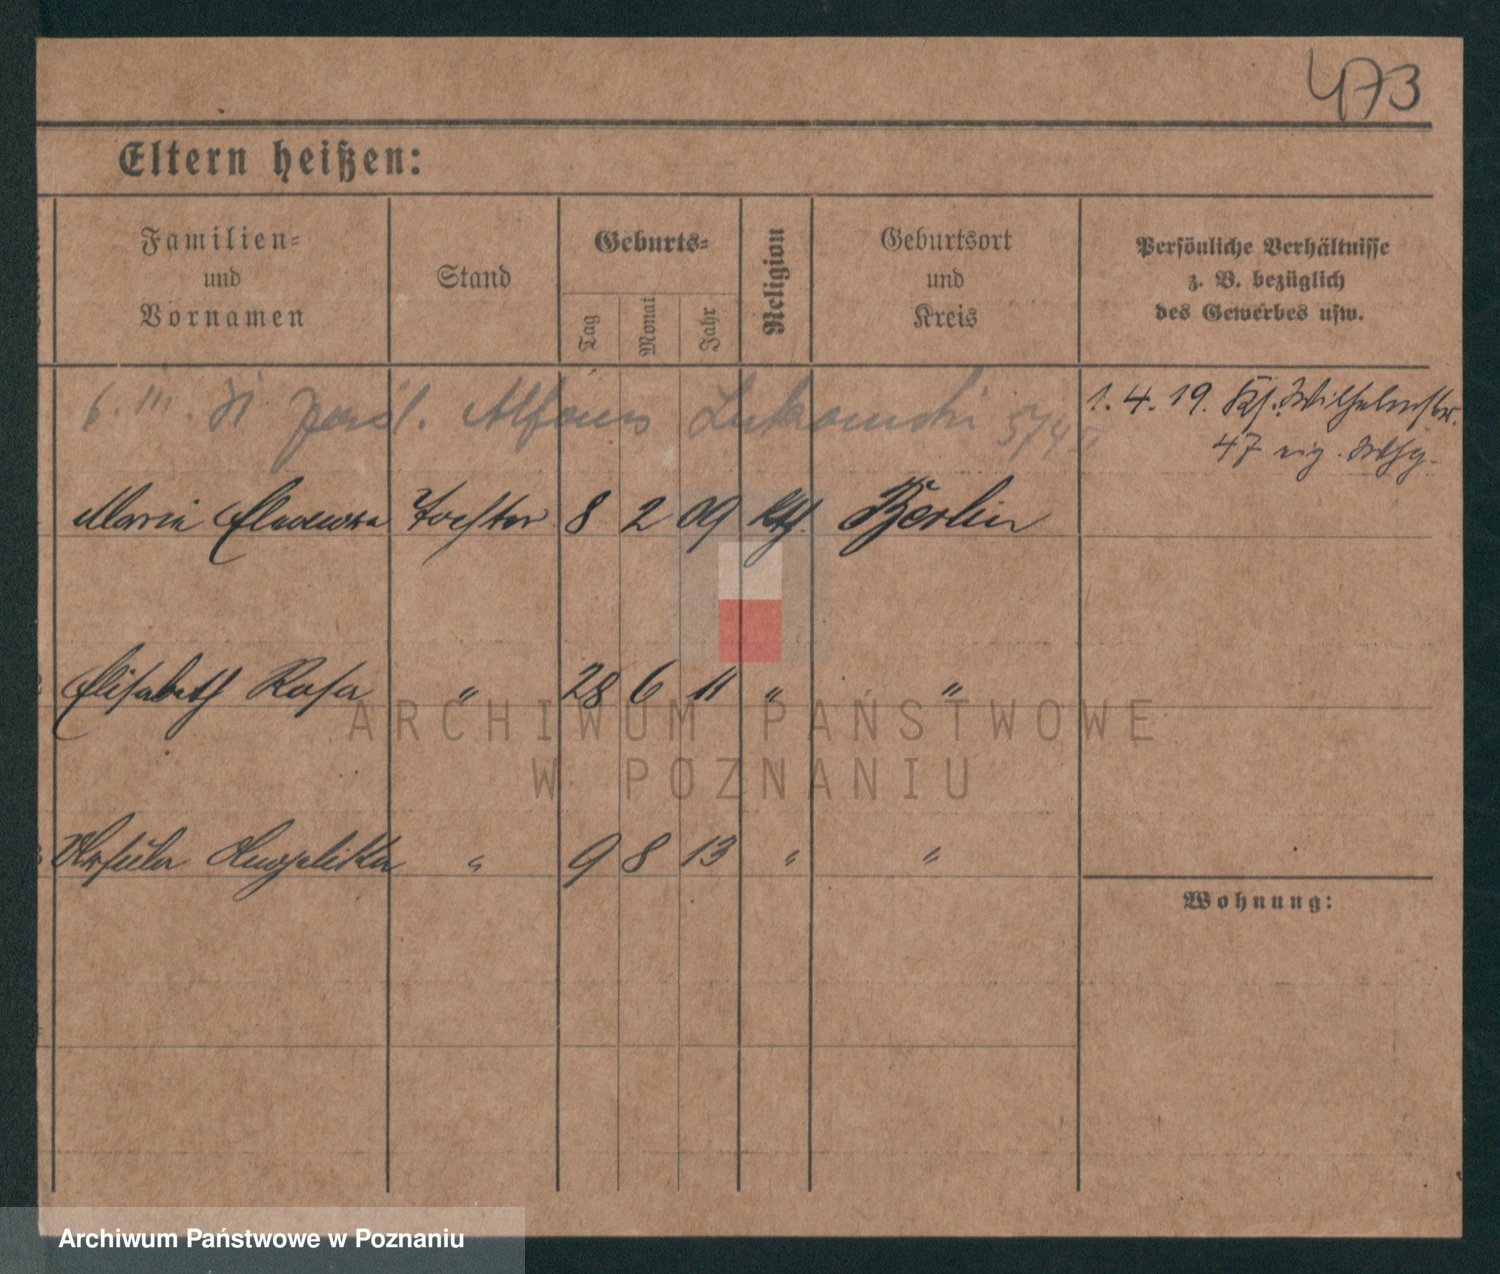 473
Eltern heißen:
Familien-
und
Vornamen
Stand
Geburts-
Tag
Monat
Jahr
Religion
Geburtsort
und
Kreis
Persönliche Verhältnisse
z. B. bezüglich
des Gewerbes usw.
6. III. 31 Alfons Lukomski 574
1. 4. 19. Kl. Wilhelmstr.
47 eig. Whg.
Maria Tochter 8 2 09 Kth. Berlin
Elisabeth Rosa " 28 6 11 " "
Ursula Angelika " 9 8 13 " "
Wohnung:
ARCHIWUM PAŃSTWOWE
W POZNANIU
Archiwum Państwowe w Poznaniu